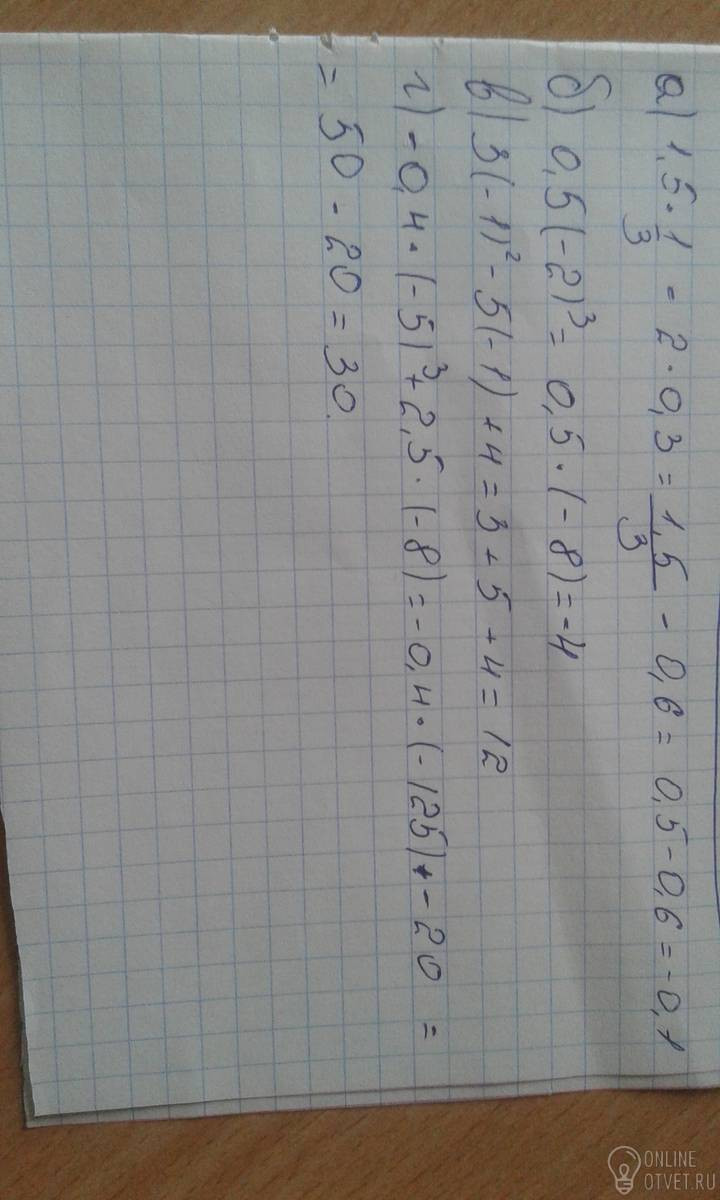 а) 1,5·1/3 = 2·0,3 = 1,5/3 - 0,6 = 0,5-0,6 = -0,1
б) 0,5(-2)³ = 0,5·(-8) = -4
в) 3(-1)² - 5(-1) + 4 = 3 + 5 + 4 = 12
г) -0,4·(-5)³ + 2,5·(-8) = -0,4·(-125) - 20 =
= 50 - 20 = 30.
ONLINE
OTVET.RU